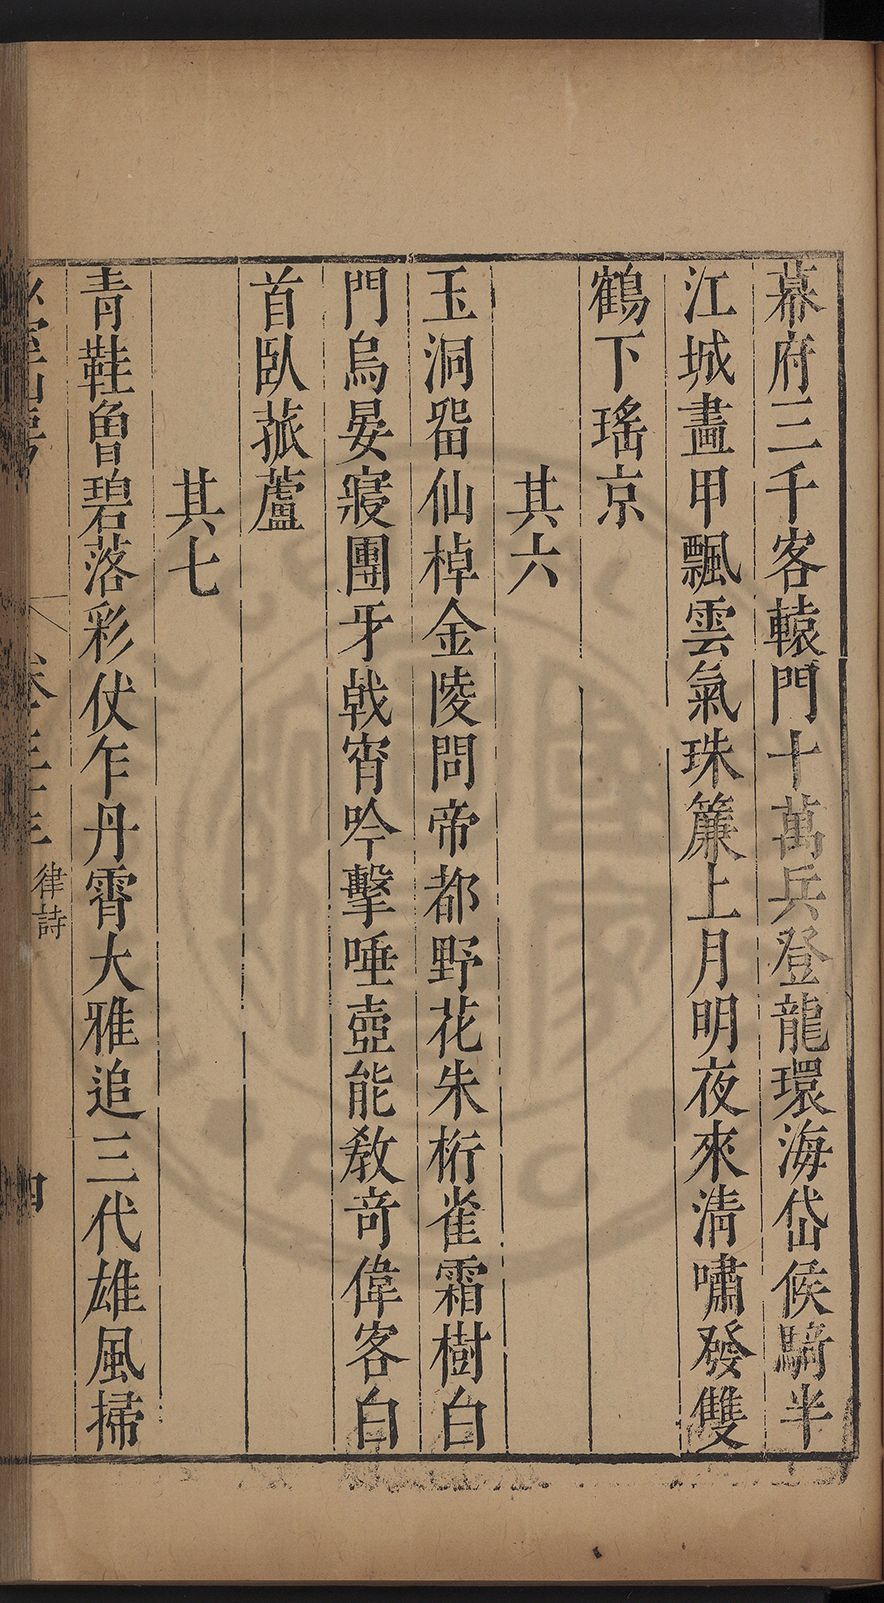 幕府三千客轅門十萬兵登龍環海岱候騎半
江城畫甲飄雲氣珠簾上月明夜來清嘯發雙
鶴下瑤京
其六
玉洞畱仙棹金陵問帝都野花朱桁雀霜樹白
門烏晏寢團牙戟宵吟擊唾壺能教奇偉客白
首臥菰蘆
其七
青鞋魯碧落彩仗乍丹霄大雅追三代雄風掃
律詩
四